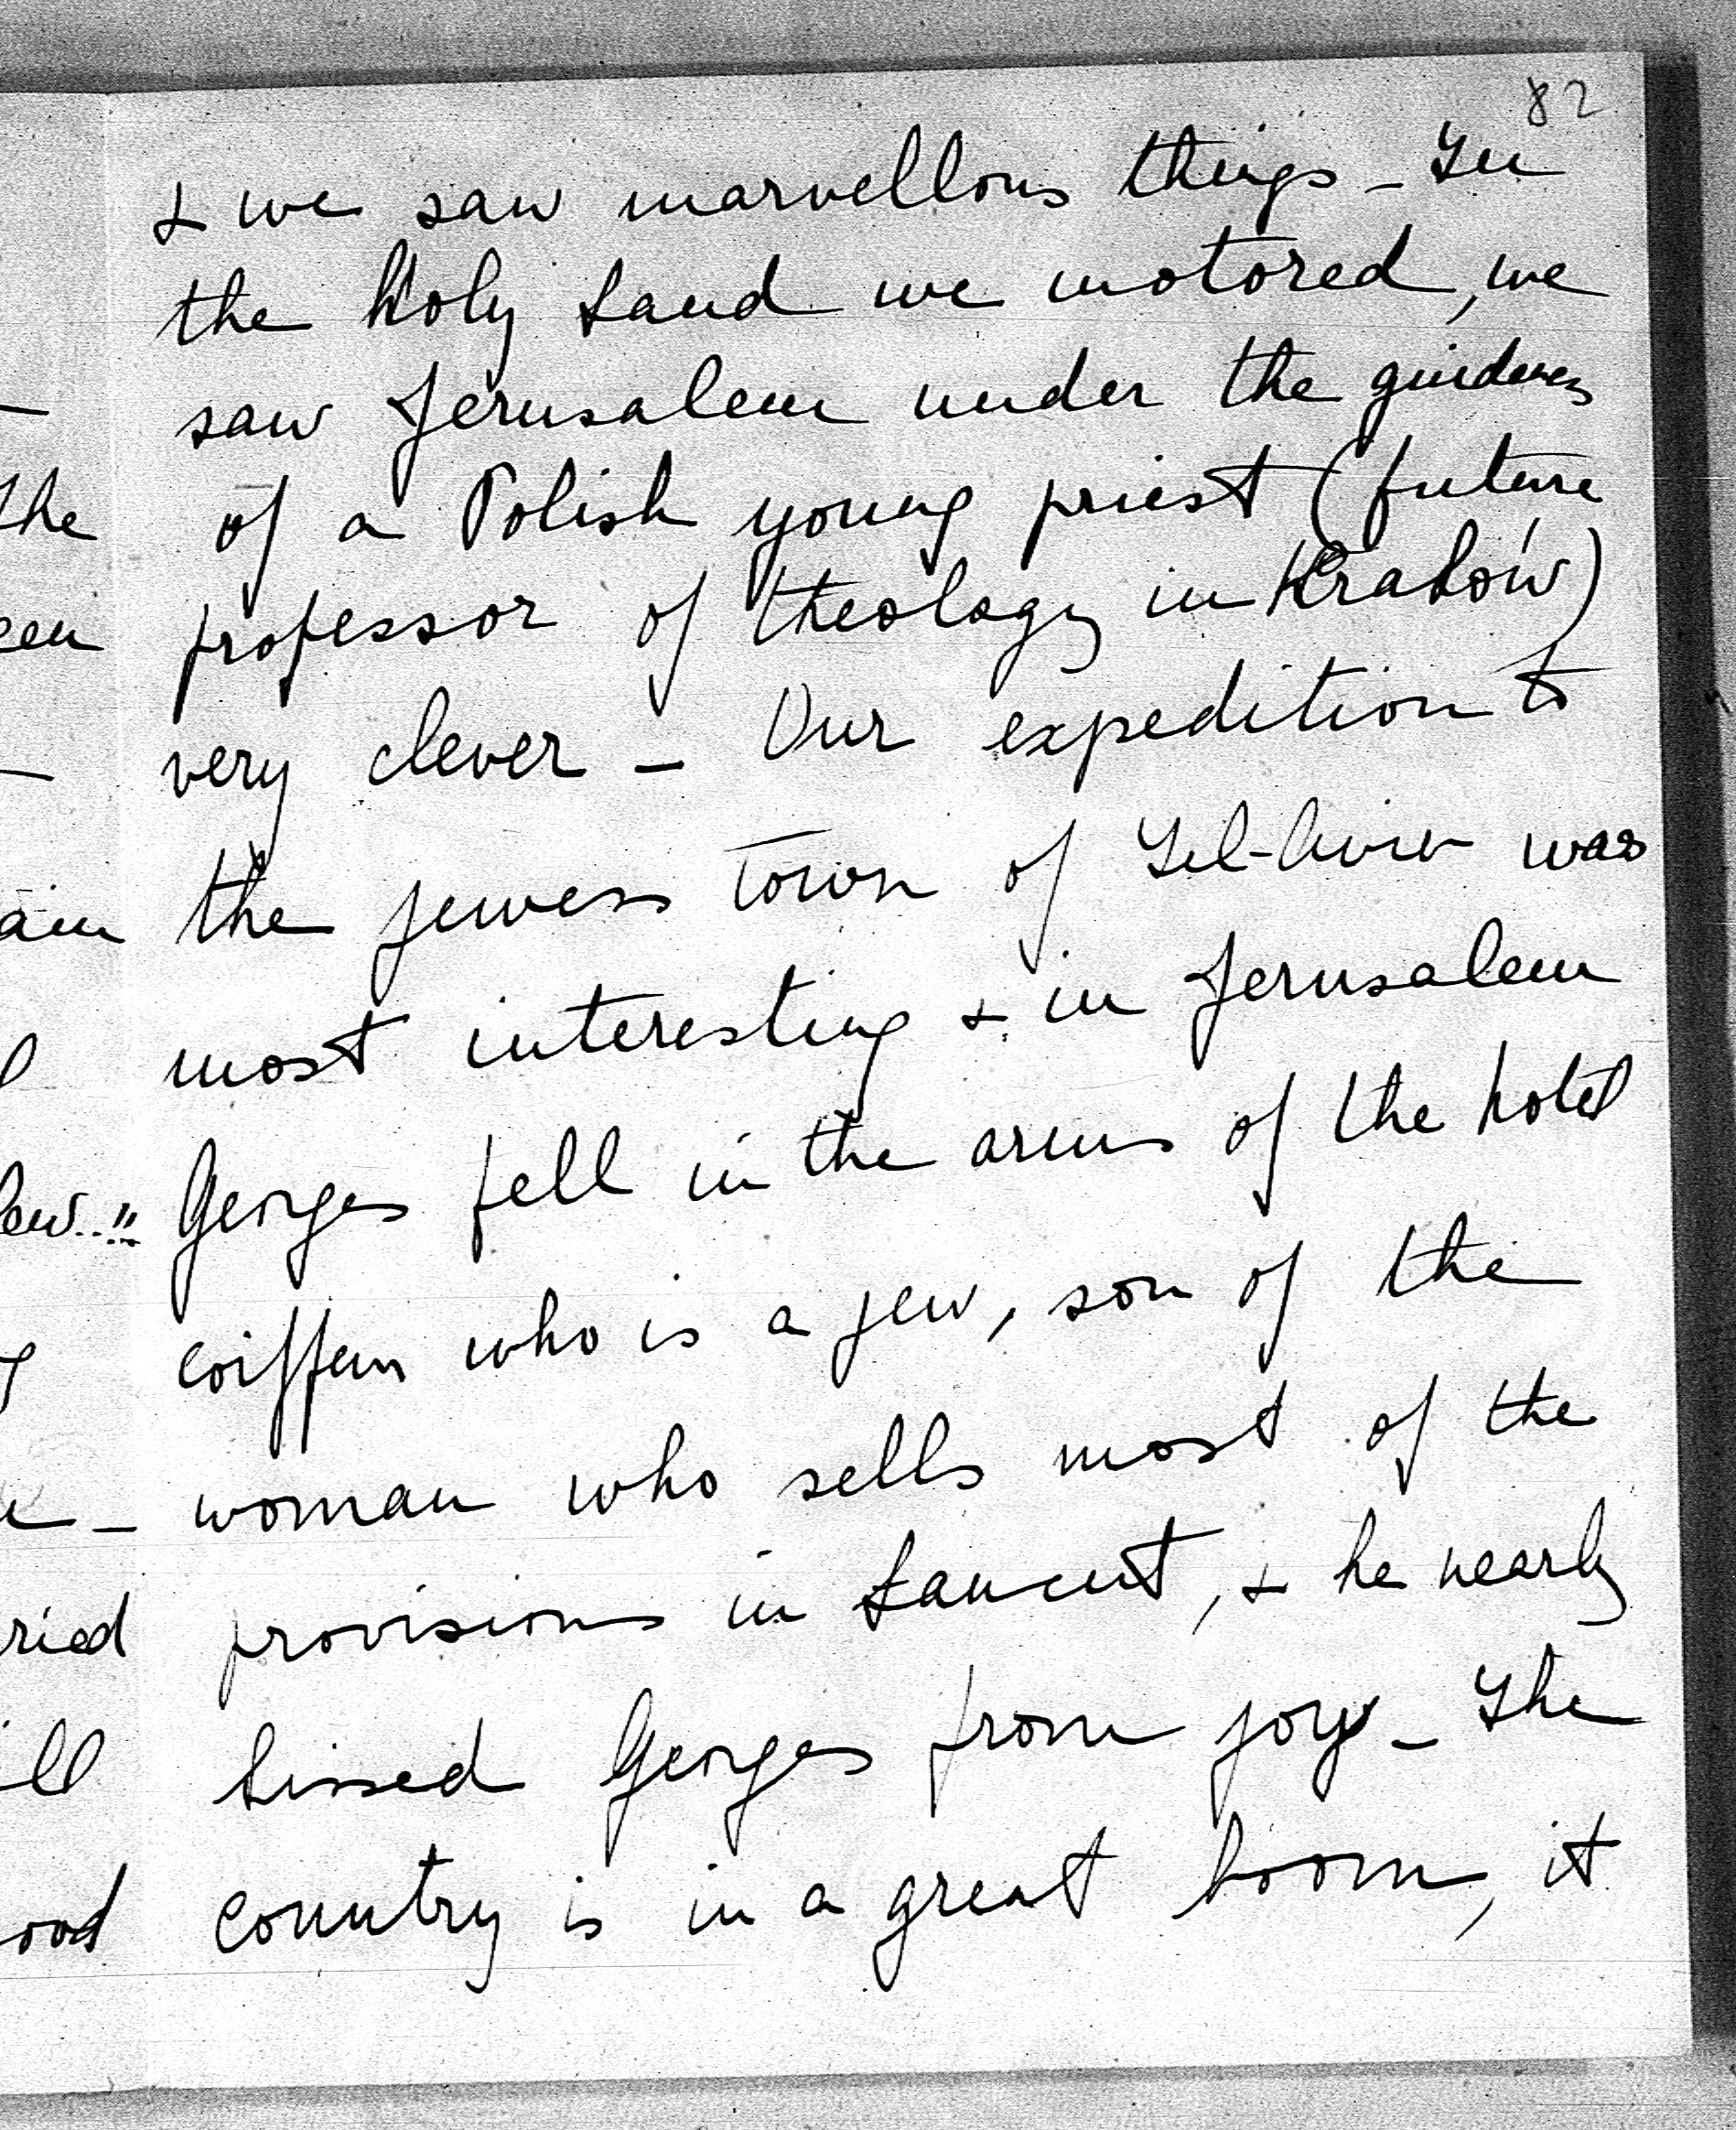 82
& we saw marvellous things - In
the Holy Land we motored, we
saw Jerusalem under the
of a Polish young priest (future
professor of theology in Kraków)
very clever - Our expedition to
the jewess town of Tel-Aviv was
most interesting & in Jerusalem
Georges fell in the arms of the hotel
coiffeur who is a jew, son of the
woman who sells most of the
provisions in Lancut, & he nearly
kissed Georges from joy - The
country is in a great boom, it